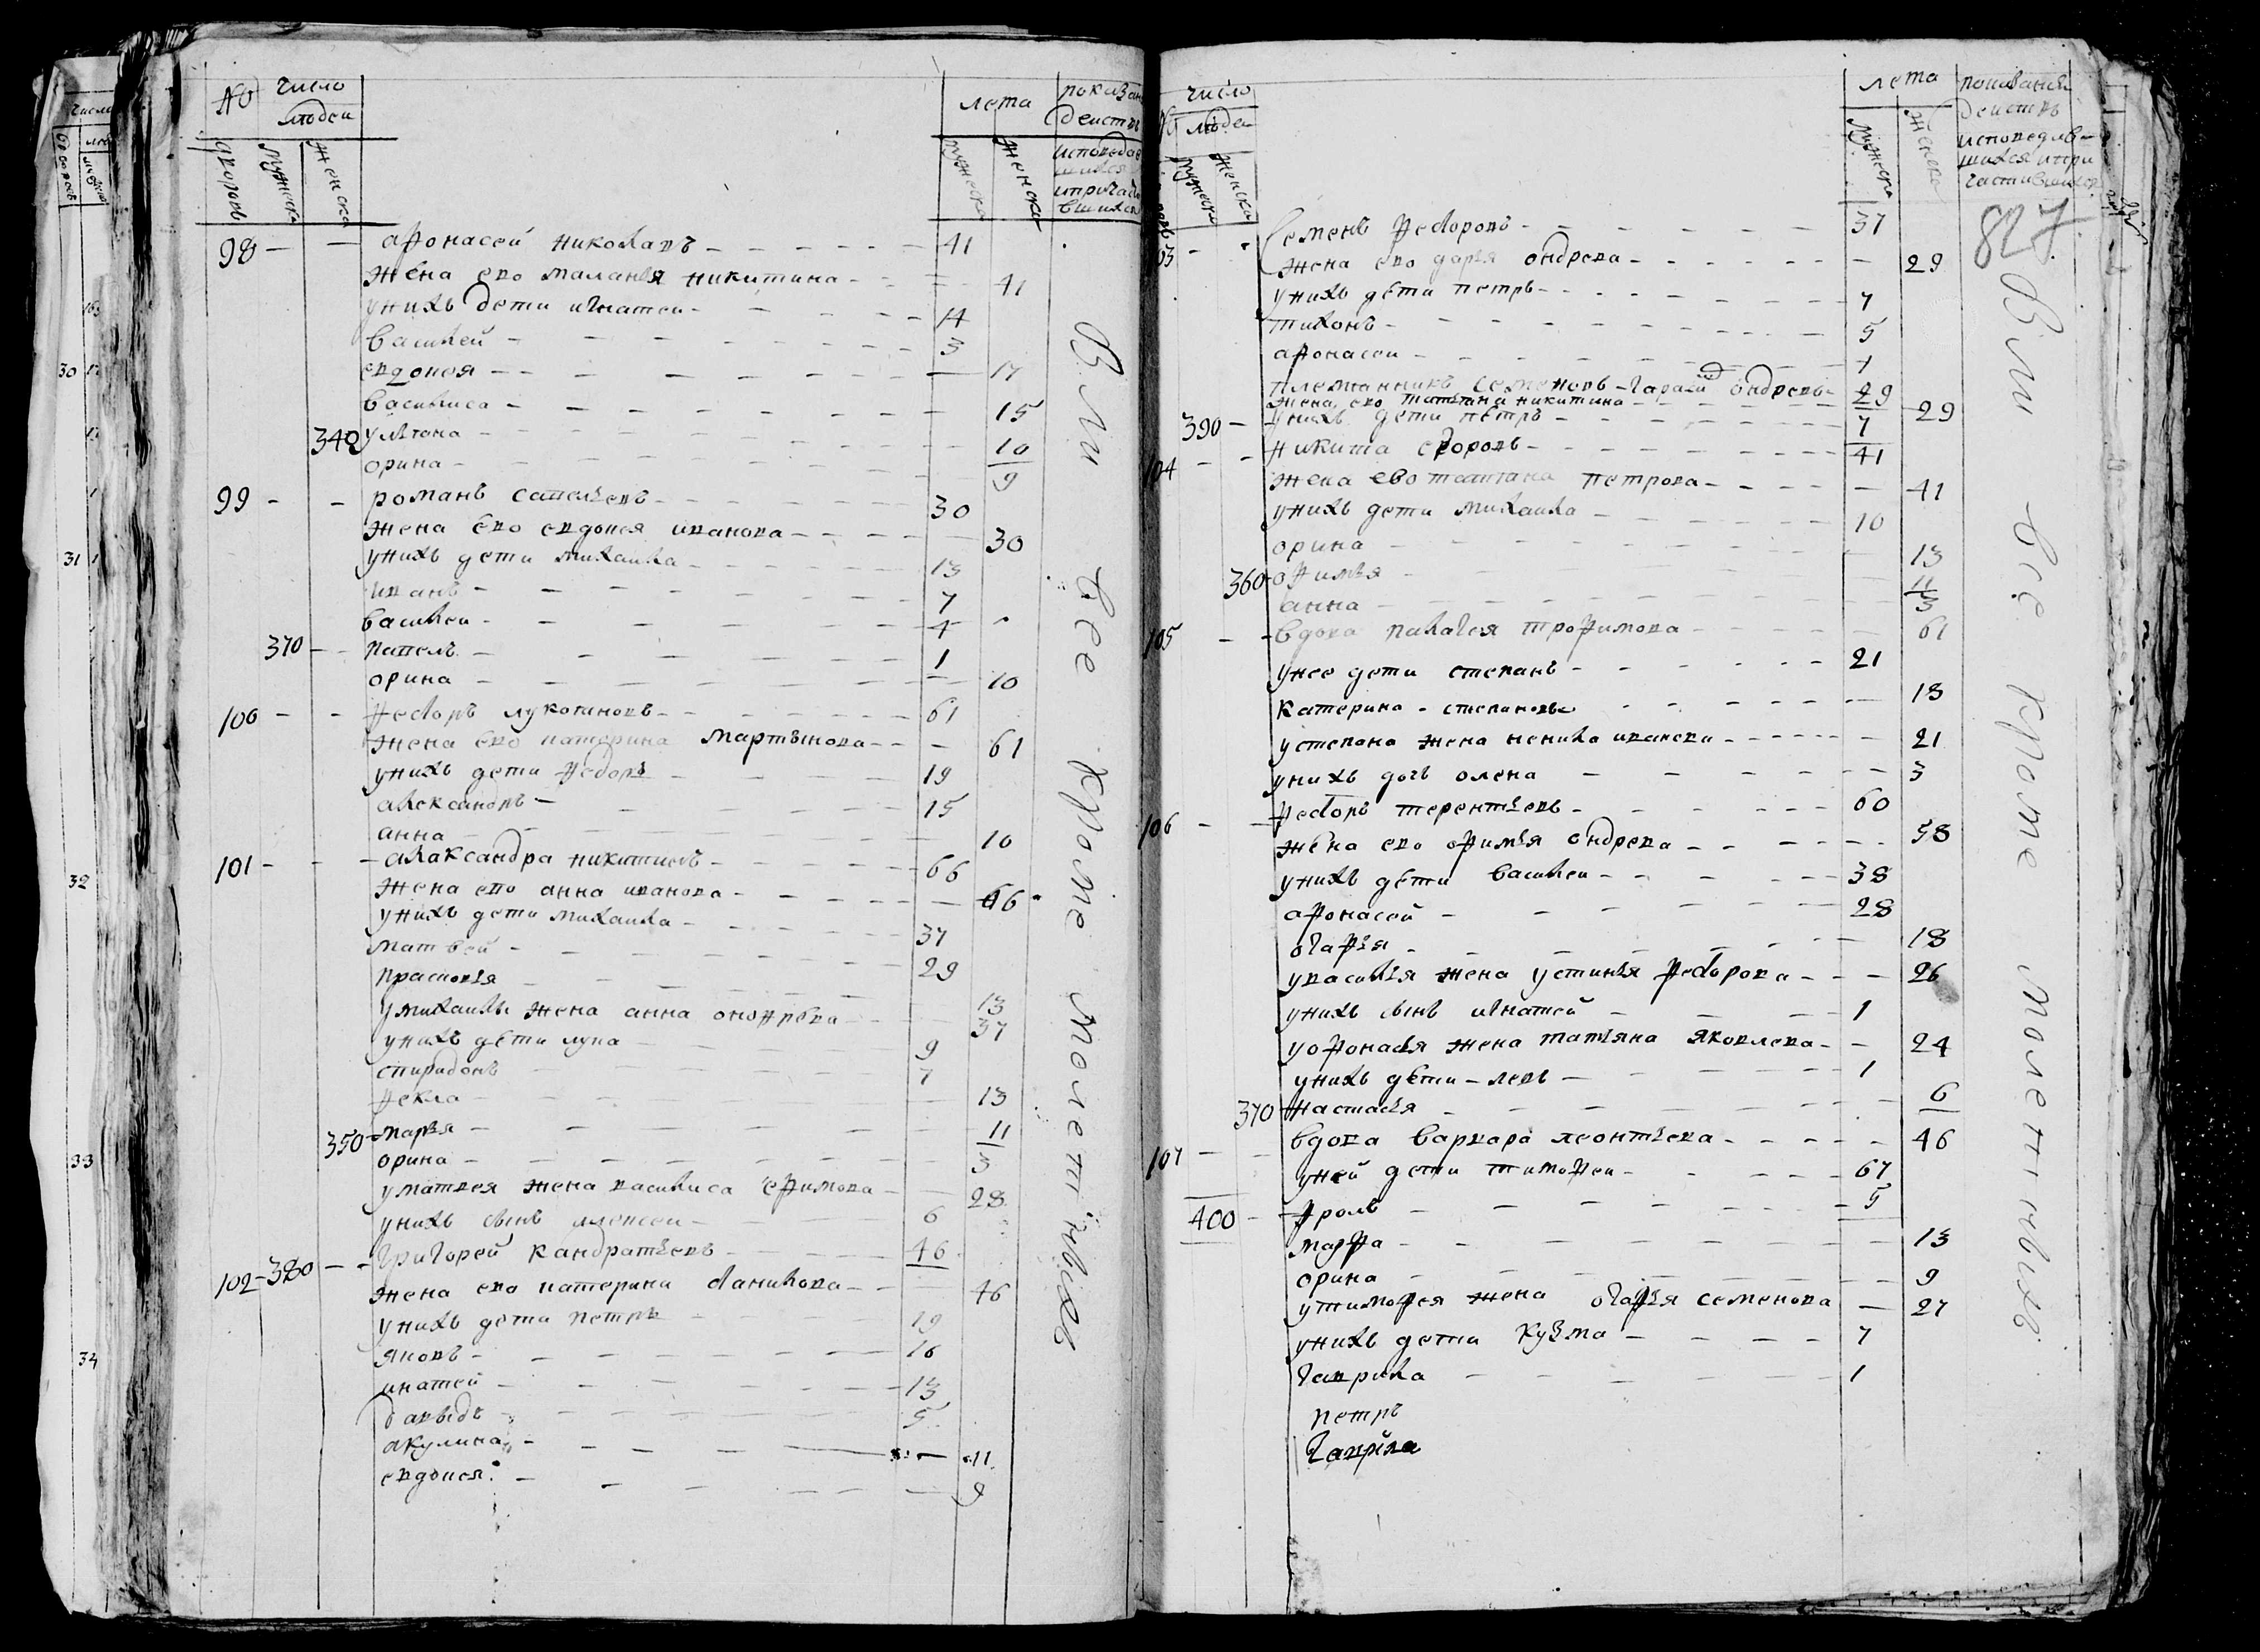 No число людей
дворовъ мужеска женска
лета
мужеска женска
показан действ
исповедав
шихся
и причасти
вшихся
98 афонасей николаевъ 41
жена ево маланья никитина 41
у нихъ дети игнатей 14
василей 3
евдокея 17
василиса 15
340 ульяна 10
орина 9
99 романъ савельевъ 30
жена ево евдокея иванова 30
у нихъ дети михаила 13
иванъ 7
василей 4
370 павелъ 1
орина 10
100 федоръ лукояновъ 61
жена ево катерина мартынова 61
у нихъ дети федоръ 19
александръ 15
анна 10
101 александра никитинъ 66
жена ево анна иванова 66
у нихъ дети михаила 37
матвей 29
прасковья 13
у михаилы жена анна онофрева 37
у нихъ дети лука 9
спиридонъ 7
фекла 13
350 марья 11
орина 3
у матвея жена василиса ефимова 28
у нихъ сынъ алексей 6
102 380 григорей кандратьевъ 46
жена ево катерина данилова 46
у нихъ дети петръ 19
яковъ 16
игнатей 13
давыдъ 5
акулина 11
евдокея 9
вси все кроме молетнивыхъ
No число людей
мужеска женска
лета
мужеска женска
показания
действъ
исповедав
шихся и при
частившихся
827
103 семенъ федоровъ 37
жена ево дарья ондрева 29
у нихъ дети петръ 7
тихонъ 5
афонасей 1
племянникъ семеновъ гарасимъ ондревъ 29
жена ево татьяна никитина 29
390 у нихъ дети петръ 7
104 никита федоровъ 41
жена ево татьяна петрова 41
у нихъ дети михаила 10
орина 13
360 офимья 11
анна 3
105 вдова палагея трофимова 61
у нее дети степанъ 21
катерина степанова 18
у степана жена ненила иванова 21
у нихъ дочь олена 3
106 федоръ терентьевъ 60
жена ево офимья ондрева 58
у нихъ дети василей 38
афонасей 28
огафья 18
у василья жена устинья федорова 26
у нихъ сынъ игнатей 1
у офонасья жена татьяна яковлева 24
у нихъ дети левъ 1
370 настасья 6
107 вдова варвара леонтьева 46
у ней дети тимофей 67
400 фролъ 5
марфа 13
орина 9
у тимофея жена огафья семенова 27
у нихъ дети кузма 7
гаврила 1
петръ
гаврила
вси все кроме молетнивыхъ